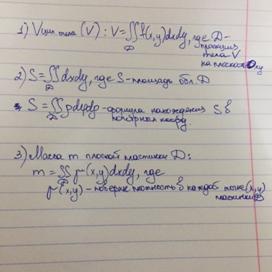 1) V цил. тела (V): V=∬f(x,y)dxdy, где D-
D проекция
тела V
на плоскость Oxy
2) S=∬dxdy, где S-площадь обл. D
D
S=∬ρdρdφ-формула нахождения S в
D полярных коорд.
3) Масса m плоской пластинки D:
m=∬μ(x,y)dxdy, где
D
μ(x,y)-поверхн. плотность в каждой точке (x,y)
пластинки D